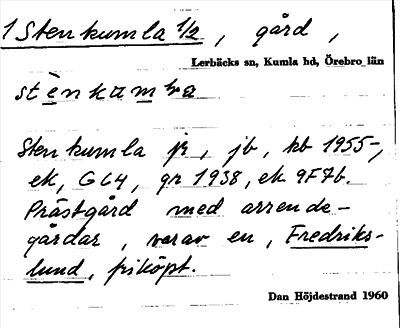 1 Stenkumla 1/2, gård,
Lerbäcks sn, Kumla hd, Örebro län
stènkumbra
Stenkumla jr, jb, kb 1955-,
ek, GG4, gr 1938, ek 9F7b.
Prästgård med arrende-
gårdar, varav en, Fredriks-
lund, friköpt.
Dan Höjdestrand 1960